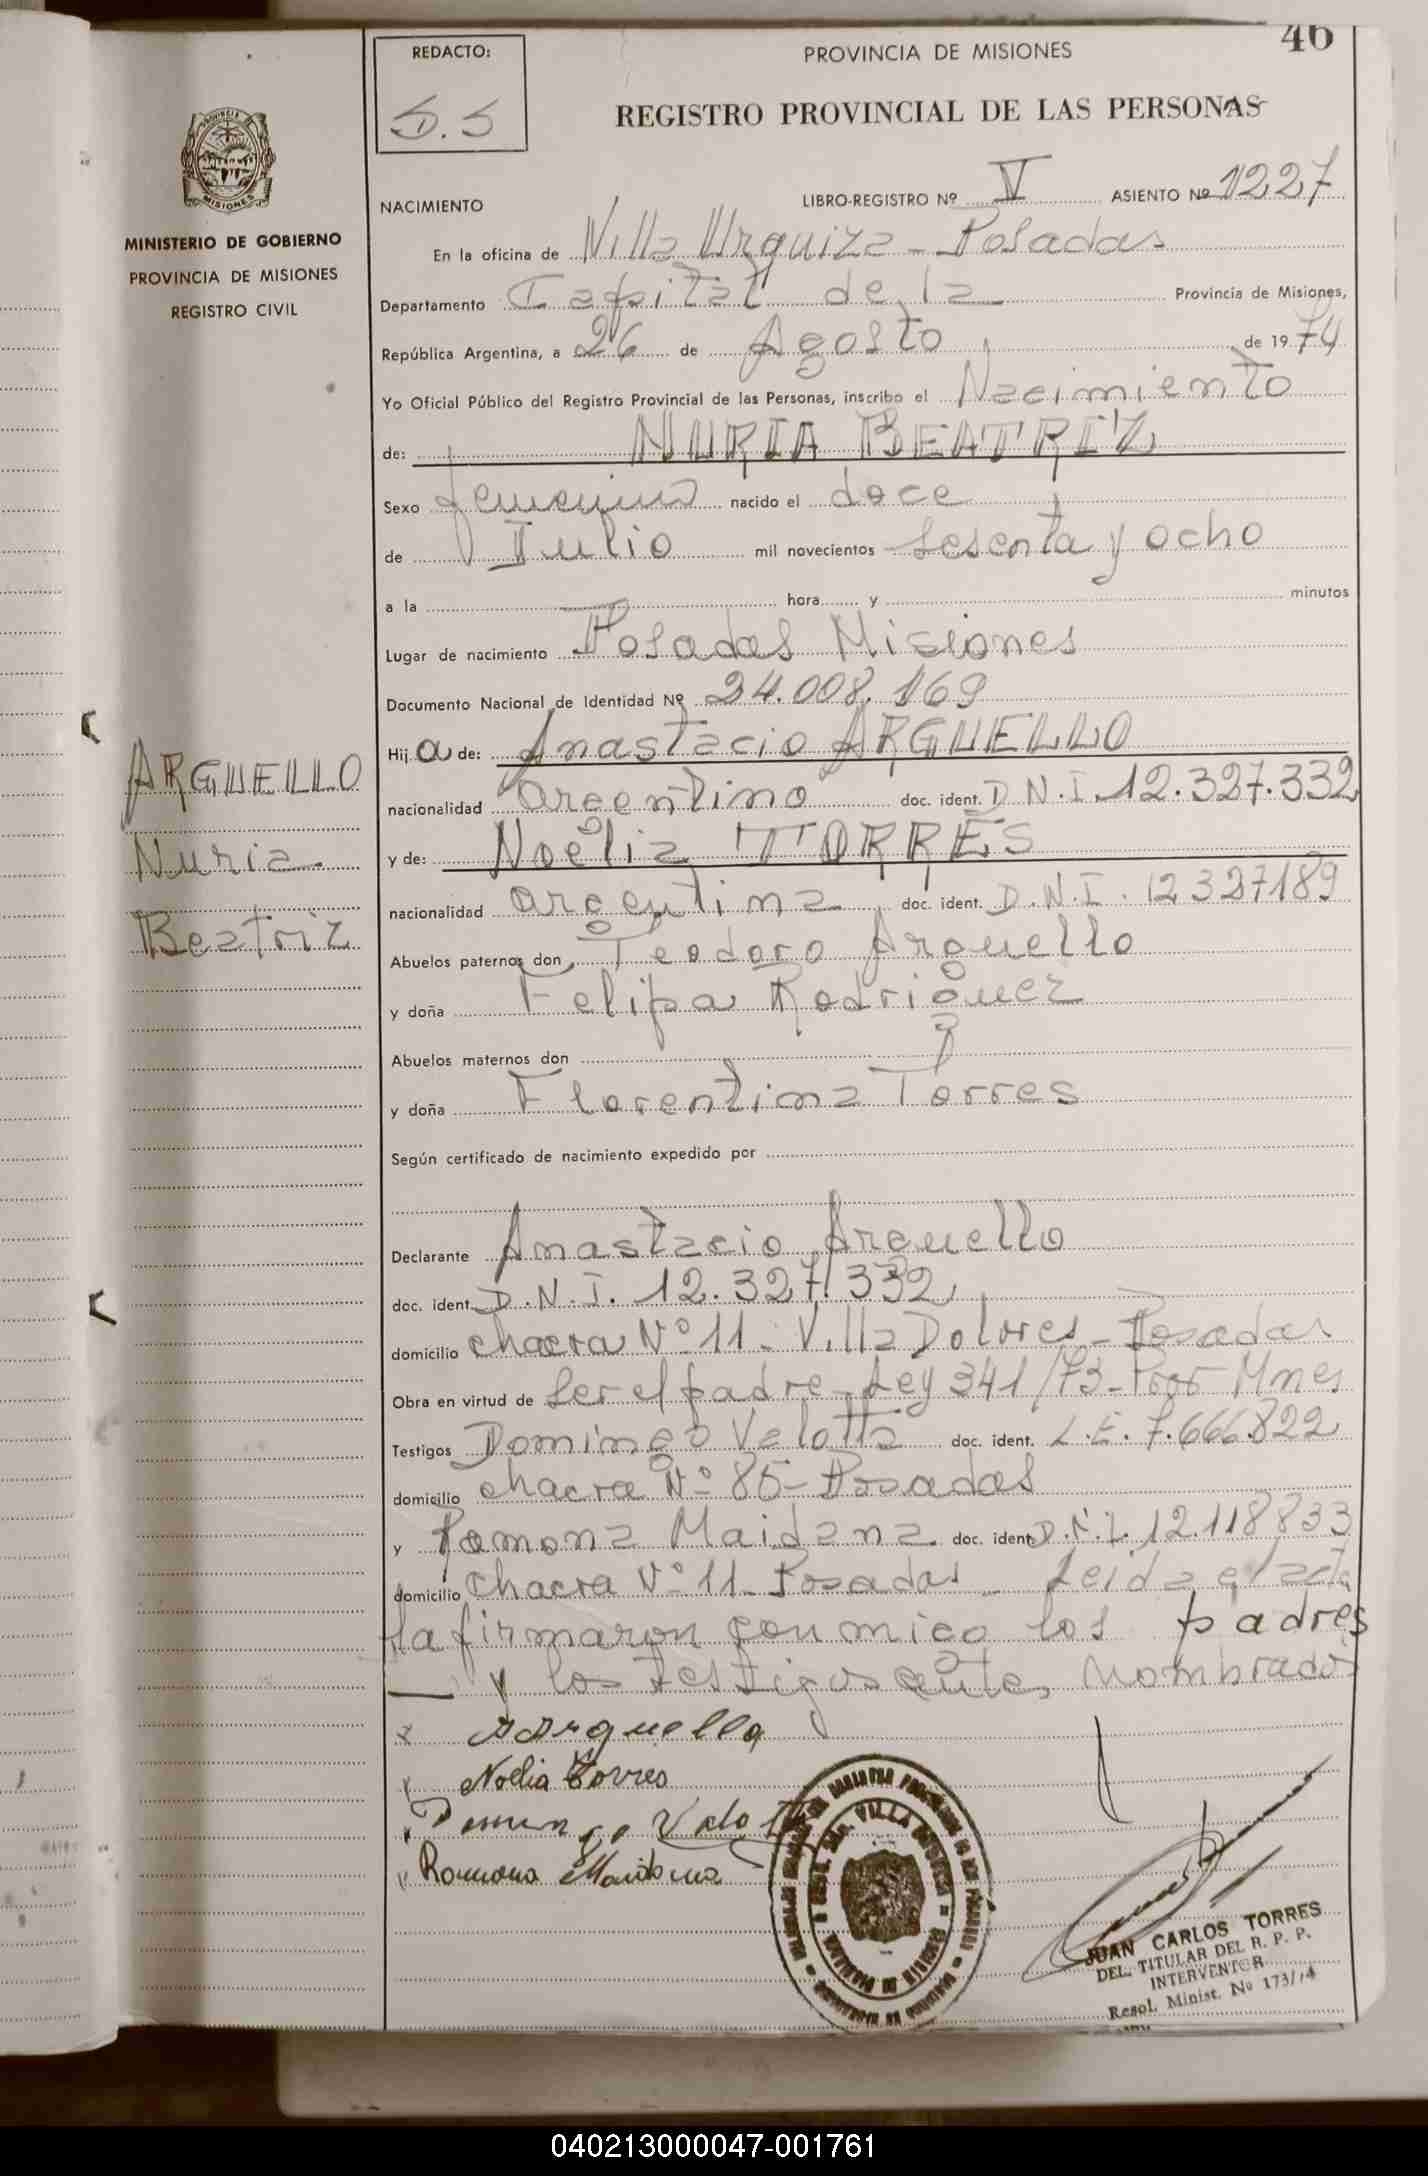 46
REDACTO:
S. S
PROVINCIA DE MISIONES
REGISTRO PROVINCIAL DE LAS PERSONAS
PROVINCIA
MISIONES
MINISTERIO DE GOBIERNO
PROVINCIA DE MISIONES
REGISTRO CIVIL
NACIMIENTO LIBRO-REGISTRO Nº IV ASIENTO Nº 1227
En la oficina de Villa Urquiza - Posadas
Departamento Capital de la Provincia de Misiones,
República Argentina, a 26 de Agosto de 1974
Yo Oficial Público del Registro Provincial de las Personas, inscribo el Nacimiento
de: NURIA BEATRIZ
Sexo femenino nacido el doce
de Julio mil novecientos sesenta y ocho
a la hora y minutos
Lugar de nacimiento Posadas Misiones
Documento Nacional de Identidad Nº 24.008.169
Hija de: Anastacio ARGUELLO
nacionalidad argentino doc. ident. D.N.I. 12.327.332
y de: Noelia TORRES
nacionalidad argentina doc. ident. D.N.I. 12327189
Abuelos paternos don Teodoro Arguello
y doña Felipa Rodriguez
Abuelos maternos don
y doña Florentina Torres
Según certificado de nacimiento expedido por
Declarante Anastacio Arguello
doc. ident. D.N.I. 12.327.332
domicilio chacra Nº 11 - Villa Dolores - Posadas
Obra en virtud de ser el padre - Ley 341/73 - Mnes
Testigos Domingo Velotta doc. ident. L.E. 7.666.822
domicilio chacra Nº 85 - Posadas
y Ramona Maidana doc. ident. D.N.I. 12.118833
domicilio chacra Nº 11 - Posadas - Leida el acta
la firmaron conmigo los padres
y los testigos antes nombrados
ARGUELLO
Nuria
Beatriz
A Arguello
Noelia Torres
Domingo Velotta
Ramona Maidana
VILLA URQUIZA
JUAN CARLOS TORRES
DEL. TITULAR DEL R. P. P.
INTERVENTOR
Resol. Minist. Nº 173/74
040213000047-001761